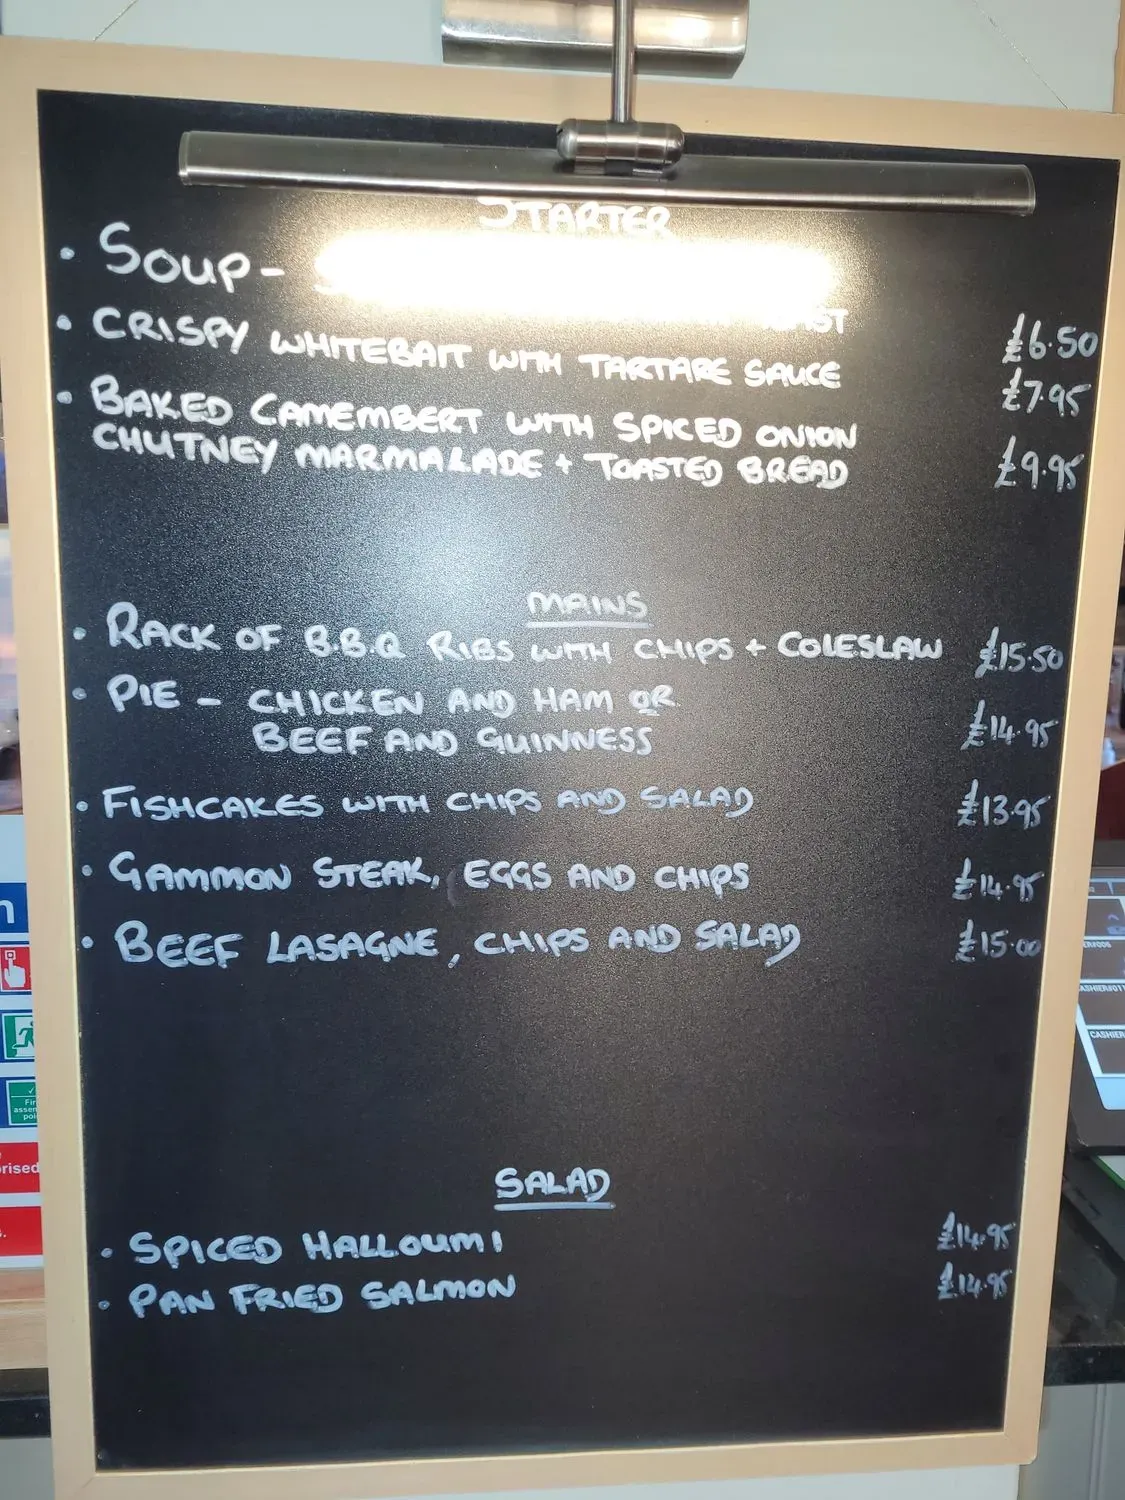 STARTER
• SOUP -
£6.50
• CRISPY WHITEBAIT WITH TARTARE SAUCE £7.95
• BAKED CAMEMBERT WITH SPICED ONION
CHUTNEY MARMALADE + TOASTED BREAD £9.95
MAINS
• RACK OF B.B.Q RIBS WITH CHIPS + COLESLAW £15.50
• PIE - CHICKEN AND HAM OR
BEEF AND GUINNESS £14.95
• FISHCAKES WITH CHIPS AND SALAD £13.95
• GAMMON STEAK, EGGS AND CHIPS £14.95
• BEEF LASAGNE, CHIPS AND SALAD £15.00
SALAD
• SPICED HALLOUMI £14.95
• PAN FRIED SALMON £14.95